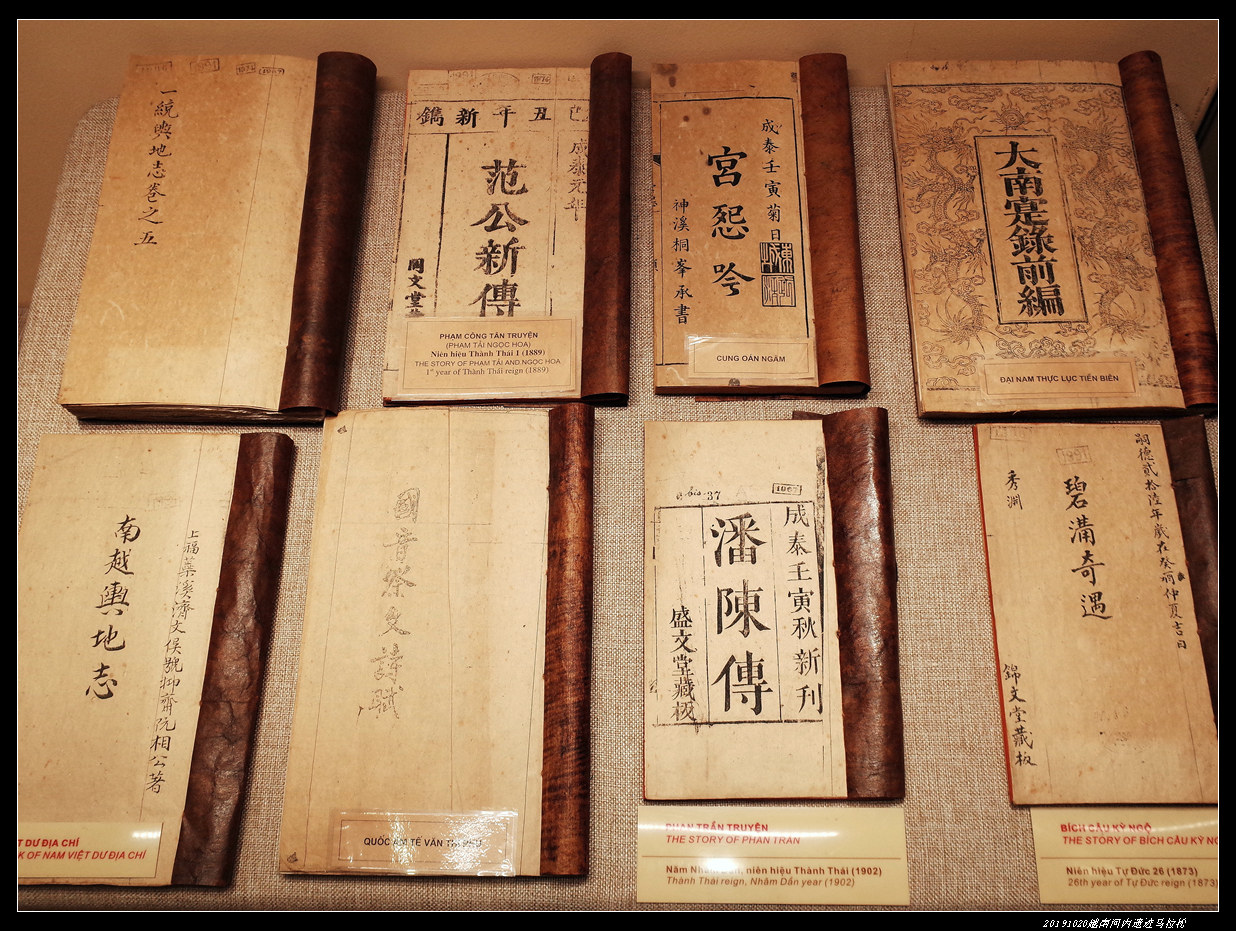 一統輿地志卷之五
己丑年新鐫
成泰元年
范公新傳
同文堂
PHẠM CÔNG TÂN TRUYỆN
(PHẠM TẢI NGỌC HOA)
Niên hiệu Thành Thái 1 (1889)
THE STORY OF PHẠM TẢI AND NGỌC HOA
1st year of Thành Thái reign (1889)
成泰壬寅菊日
宮怨吟
神溪桐峯承書
CUNG OÁN NGÂM
大南寔錄前編
ĐẠI NAM THỰC LỤC TIỀN BIÊN
上福蘂溪濟文侯號抑齋阮相公著
南越輿地志
T DƯ ĐỊA CHÍ
K OF NAM VIỆT DƯ ĐỊA CHÍ
國音祭文詩賦
QUỐC ÂM TẾ VĂN THI PHÚ
37
成泰壬寅秋新刊
潘陳傳
盛文堂藏板
PHAN TRẦN TRUYỆN
THE STORY OF PHAN TRAN
Năm Nhâm Dần, niên hiệu Thành Thái (1902)
Thành Thái reign, Nhâm Dần year (1902)
嗣德貳拾陸年歲在癸酉仲夏吉日
碧溝奇遇
秀淵
錦文堂藏板
BÍCH CÂU KỲ NGỘ
THE STORY OF BÍCH CÂU KỲ NG
Niên hiệu Tự Đức 26 (1873)
26th year of Tự Đức reign (1873)
20191020越南河内遗迹马拉松